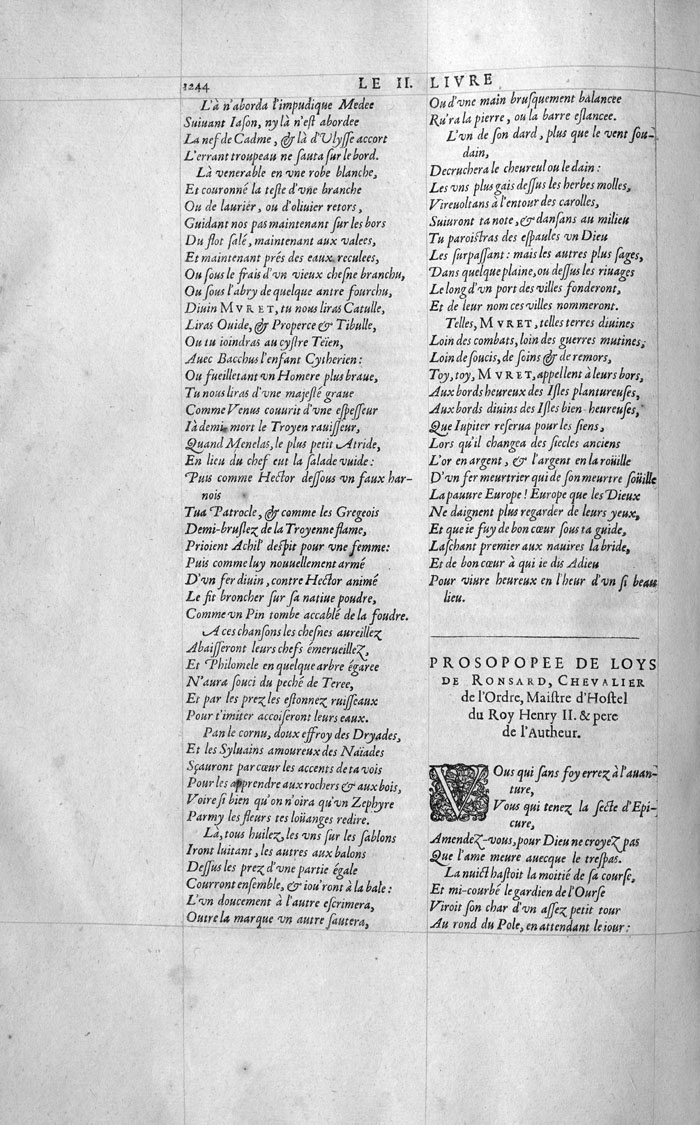 1244
LE II. LIVRE
L'à n'aborda l'impudique Medee
Suiuant Iason, ny là n'est abordee
La nef de Cadme, & là d'Vlysse accort
L'errant troupeau ne sauta sur le bord.
Là venerable en vne robe blanche,
Et couronné la teste d'vne branche
Ou de laurier, ou d'oliuier retors,
Guidant nos pas maintenant sur les bors
Du flot salé, maintenant aux valees,
Et maintenant prés des eaux reculees,
Ou sous le frais d'vn vieux chesne branchu,
Ou sous l'abry de quelque antre fourchu,
Diuin MVRET, tu nous liras Catulle,
Liras Ouide, & Properce & Tibulle,
Ou tu ioindras au cystre Teïen,
Auec Bacchus l'enfant Cytherien:
Ou fueilletant vn Homere plus braue,
Tu nous liras d'vne maiesté graue
Comme Venus couurit d'vne espesseur
Ia demi-mort le Troyen rauisseur,
Quand Menelas, le plus petit Atride,
En lieu du chef eut la salade vuide:
Puis comme Hector dessous vn faux har-
nois
Tua Patrocle, & comme les Gregeois
Demi-bruslez de la Troyenne flame,
Prioient Achil' despit pour vne femme:
Puis comme luy nouuellement armé
D'vn fer diuin, contre Hector animé
Le fit broncher sur sa natiue poudre,
Comme vn Pin tombe accablé de la foudre.
A ces chansons les chesnes aureillez
Abaisseront leurs chefs émerueillez,
Et Philomele en quelque arbre égaree
N'aura souci du peché de Teree,
Et par les prez les estonnez ruisseaux
Pour t'imiter accoiseront leurs eaux.
Pan le cornu, doux effroy des Dryades,
Et les Syluains amoureux des Naïades
Sçauront par cœur les accents de ta vois
Pour les apprendre aux rochers & aux bois,
Voire si bien qu'on n'oira qu'vn Zephyre
Parmy les fleurs tes loüanges redire.
Là, tous huilez, les vns sur les sablons
Iront luitant, les autres aux balons
Dessus les prez d'vne partie égale
Courront ensemble, & iou'ront à la bale:
L'vn doucement à l'autre escrimera,
Outre la marque vn autre sautera,
Ou d'vne main brusquement balancee
Ru'ra la pierre, ou la barre eslancee.
L'vn de son dard, plus que le vent sou-
dain,
Decruchera le cheureul ou le dain:
Les vns plus gais dessus les herbes molles,
Vireuoltans à l'entour des carolles,
Suiuront ta note, & dansans au milieu
Tu paroistras des espaules vn Dieu
Les surpassant: mais les autres plus sages,
Dans quelque plaine, ou dessus les riuages
Le long d'vn port des villes fonderont,
Et de leur nom ces villes nommeront.
Telles, MVRET, telles terres diuines
Loin des combats, loin des guerres mutines,
Loin de soucis, de soins & de remors,
Toy, toy, MVRET, appellent à leurs bors,
Aux bords heureux des Isles plantureuses,
Aux bords diuins des Isles bien-heureuses,
Que Iupiter reserua pour les siens,
Lors qu'il changea des siecles anciens
L'or en argent, & l'argent en la roüille
D'vn fer meurtrier qui de son meurtre soüille
La pauure Europe! Europe que les Dieux
Ne daignent plus regarder de leurs yeux,
Et que ie fuy de bon cœur sous ta guide,
Laschant premier aux nauires la bride,
Et de bon cœur à qui ie dis Adieu
Pour viure heureux en l'heur d'vn si beau
lieu.
PROSOPOPEE DE LOYS
DE RONSARD, CHEVALIER
de l'Ordre, Maistre d'Hostel
du Roy Henry II. & pere
de l'Autheur.
VOus qui sans foy errez à l'auan-
ture,
Vous qui tenez la secte d'Epi-
cure,
Amendez-vous, pour Dieu ne croyez pas
Que l'ame meure auecque le trespas.
La nuict hastoit la moitié de sa course,
Et mi-courbé le gardien de l'Ourse
Viroit son char d'vn assez petit tour
Au rond du Pole, en attendant le iour: